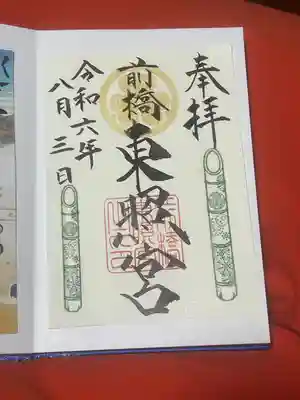 奉拝
前橋東照宮
令和六年
八月三日